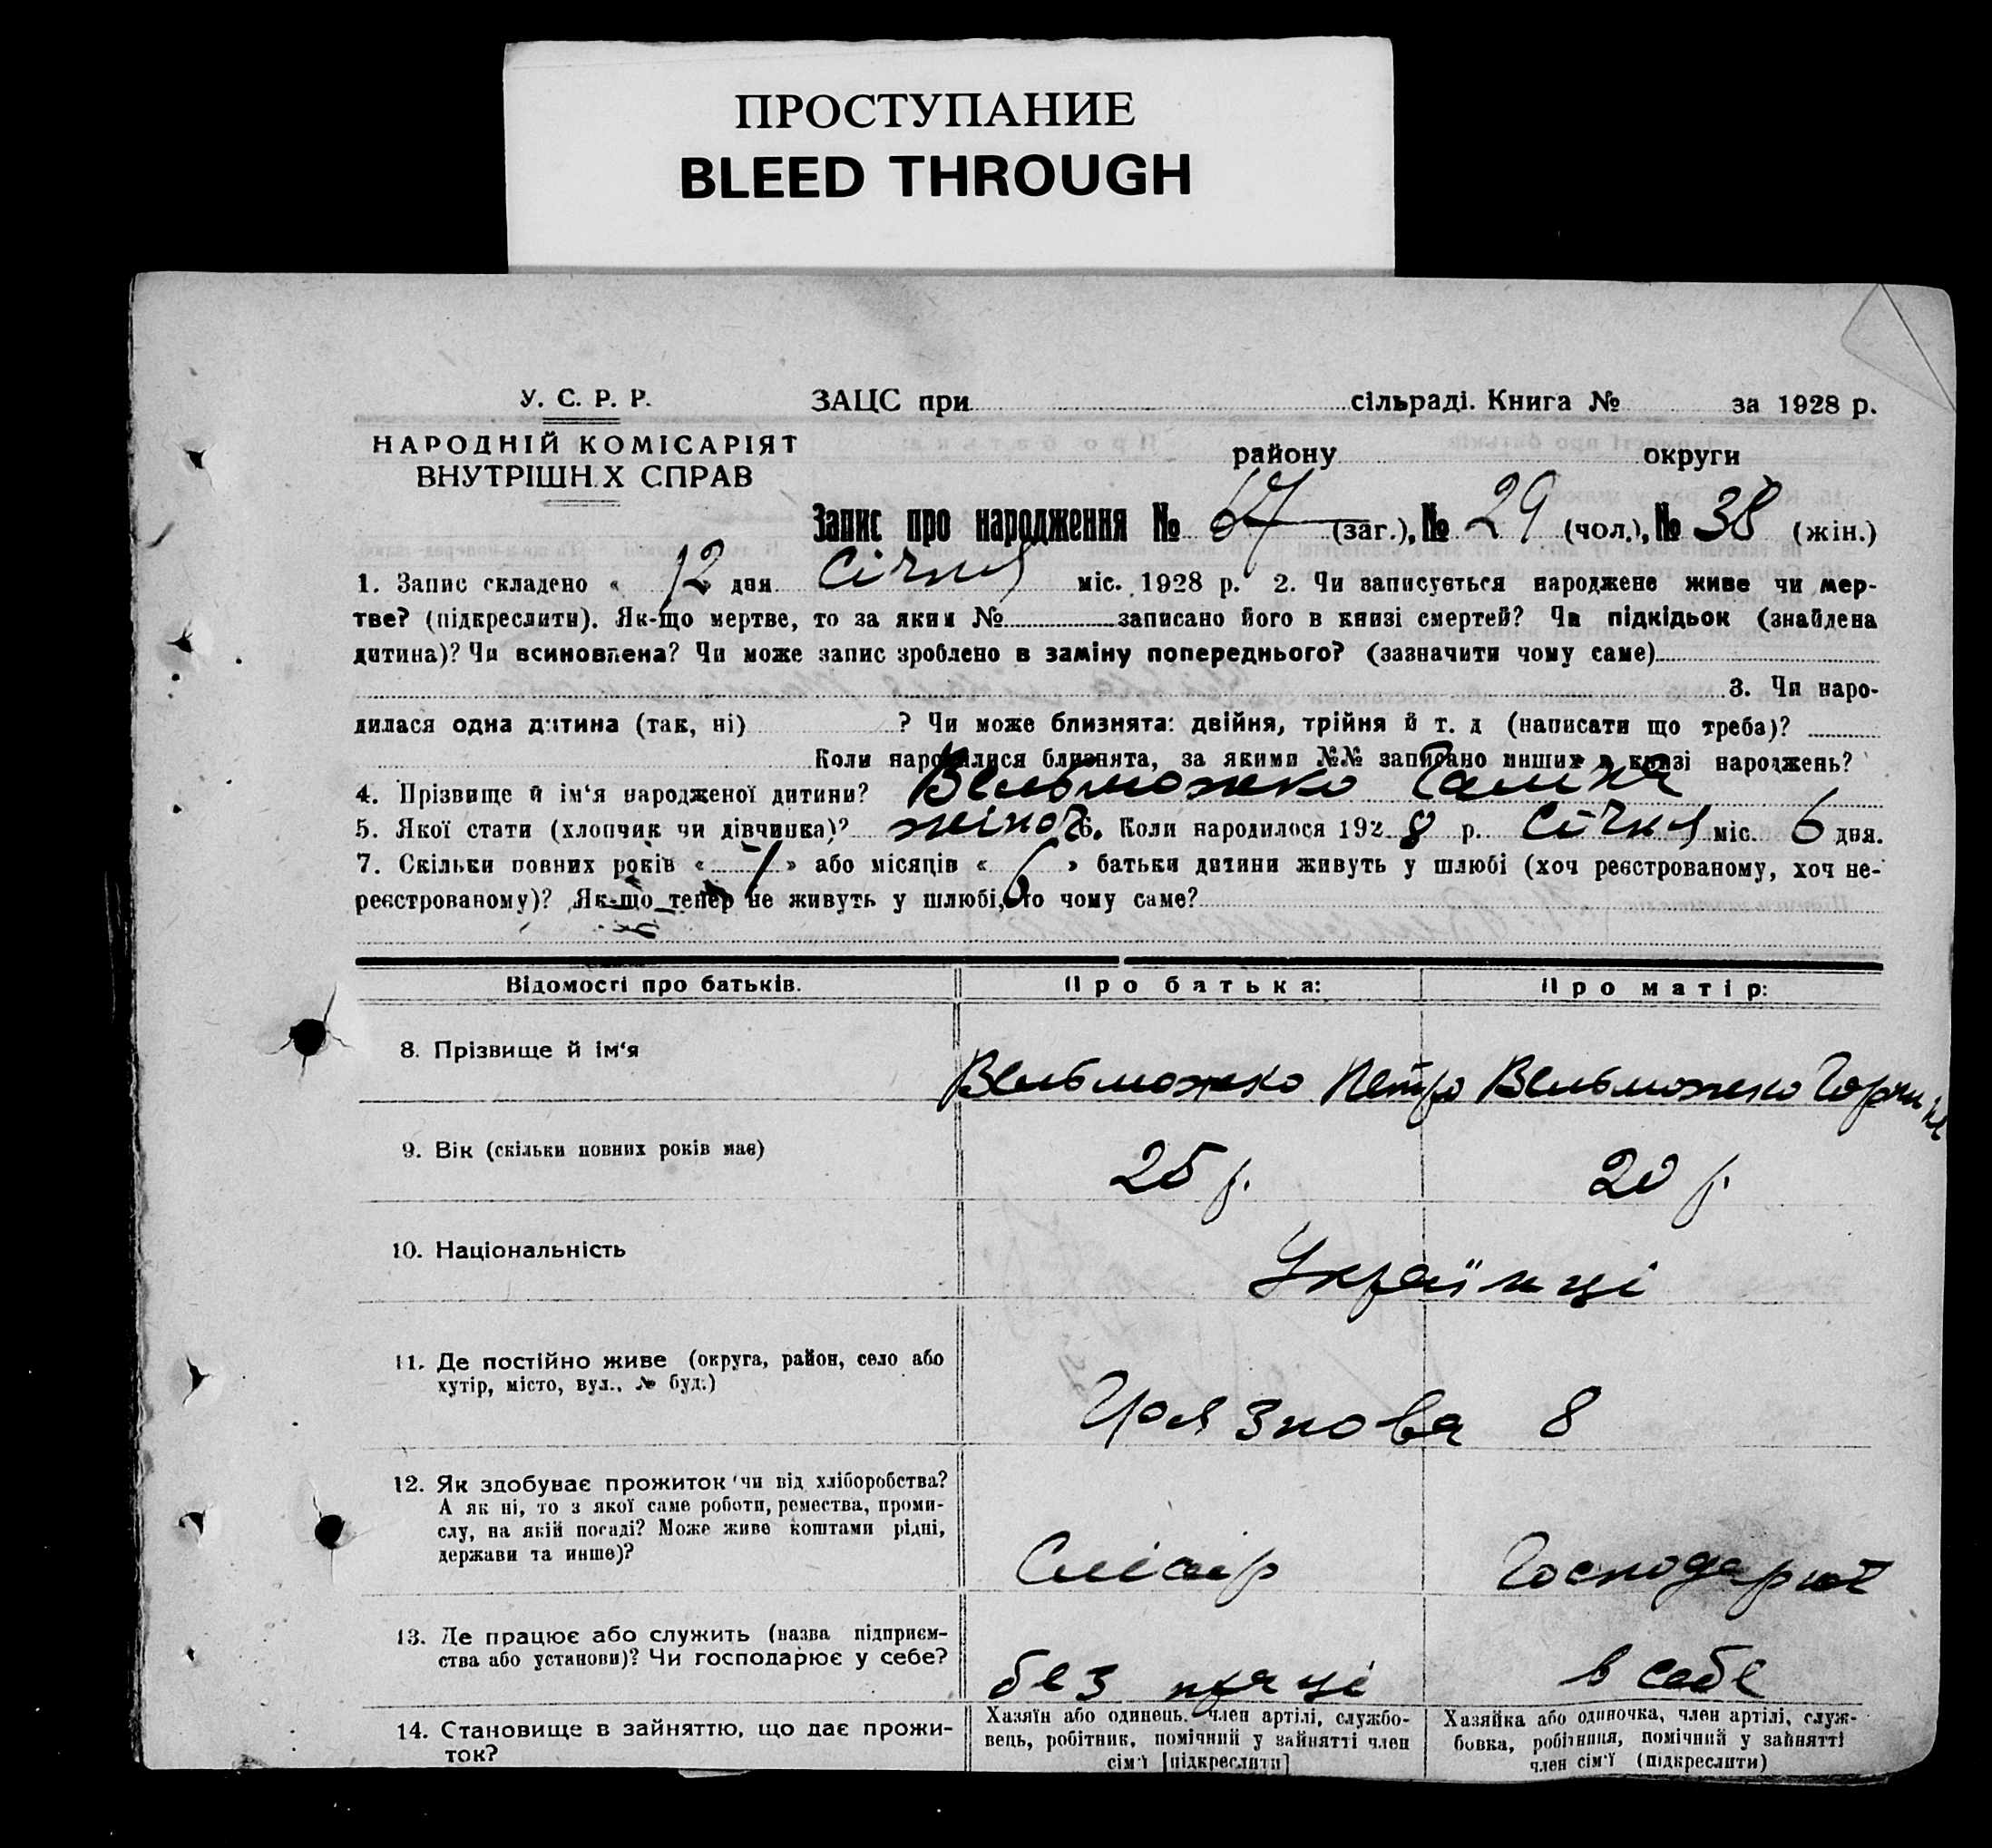 ПРОСТУПАНИЕ
BLEED THROUGH
У. С. Р. Р.
ЗАЦС при сільраді. Книга № за 1928 р.
НАРОДНІЙ КОМІСАРІЯТ
ВНУТРІШН.Х СПРАВ
району округи
Запис про народження № 67 (заг.), № 29 (чол.), № 38 (жін.)
1. Запис складено « 12 дня Січня міс. 1928 р. 2. Чи записується народжене живе чи мер-
тве? (підкреслити). Як-що мертве, то за яким № записано його в книзі смертей? Чи підкідьок (знайдена
дитина)? Чи всиновлена? Чи може запис зроблено в заміну попереднього? (зазначити чому саме)
3. Чи наро-
дилася одна дитина (так, ні) ? Чи може близнята: двійня, трійня й т. д (написати що треба)?
Коли народилися близнята, за якими №№ записано инших в книзі народжень?
4. Прізвище й ім‘я народженої дитини? Вельможко Галина
5. Якої стати (хлопчик чи дівчинка)? жіноч 6. Коли народилося 192 8 р. Січня міс. 6 дня.
7. Скільки повних років « 1 » або місяців « » батьки дитини живуть у шлюбі (хоч реєстрованому, хоч не-
реєстрованому)? Як-що тепер не живуть у шлюбі, то чому саме?
Відомості про батьків. Про батька: Про матір:
8. Прізвище й ім‘я Вельможко Петро Вельможко Горпина
9. Вік (скільки повних років має) 25 р. 20 р.
10. Національність Українці
11. Де постійно живе (округа, район, село або
хутір, місто, вул., № буд.)
Грязнова 8
12. Як здобуває прожиток чи від хліборобства?
А як ні, то з якої саме роботи, ремества, проми-
слу, на якій посаді? Може живе коштами рідні,
держави та инше)?
Слісар Господарює
13. Де працює або служить (назва підприєм-
ства або установи)? Чи господарює у себе?
без праці в себе
14. Становище в зайняттю, що дає прожи-
ток?
Хазяїн або одинець. член артілі, службо-
вець, робітник, помічний у зайнятті член
сім‘ї [підкреслити]
Хазяйка або одиночка, член артілі, служ-
бовка, робітниця, помічний у зайнятті
член сім‘ї (підкреслити)